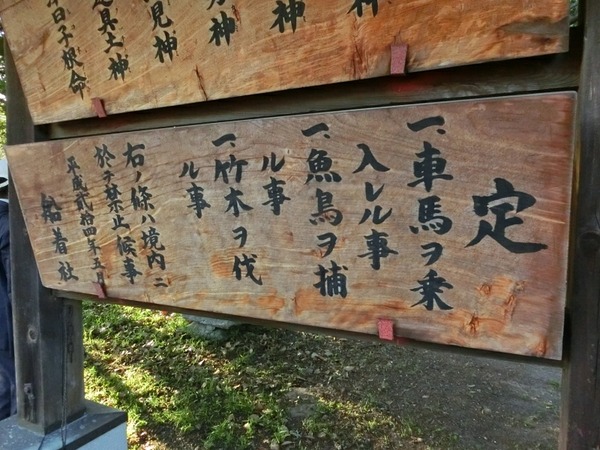 定
一、車馬ヲ乗
入レル事
一、魚鳥ヲ捕
ル事
一、竹木ヲ伐
ル事
右ノ條ハ境内ニ
於テ禁止候事
平成弐拾四年三月
船着社
見神
具土神
日子根命
神
神